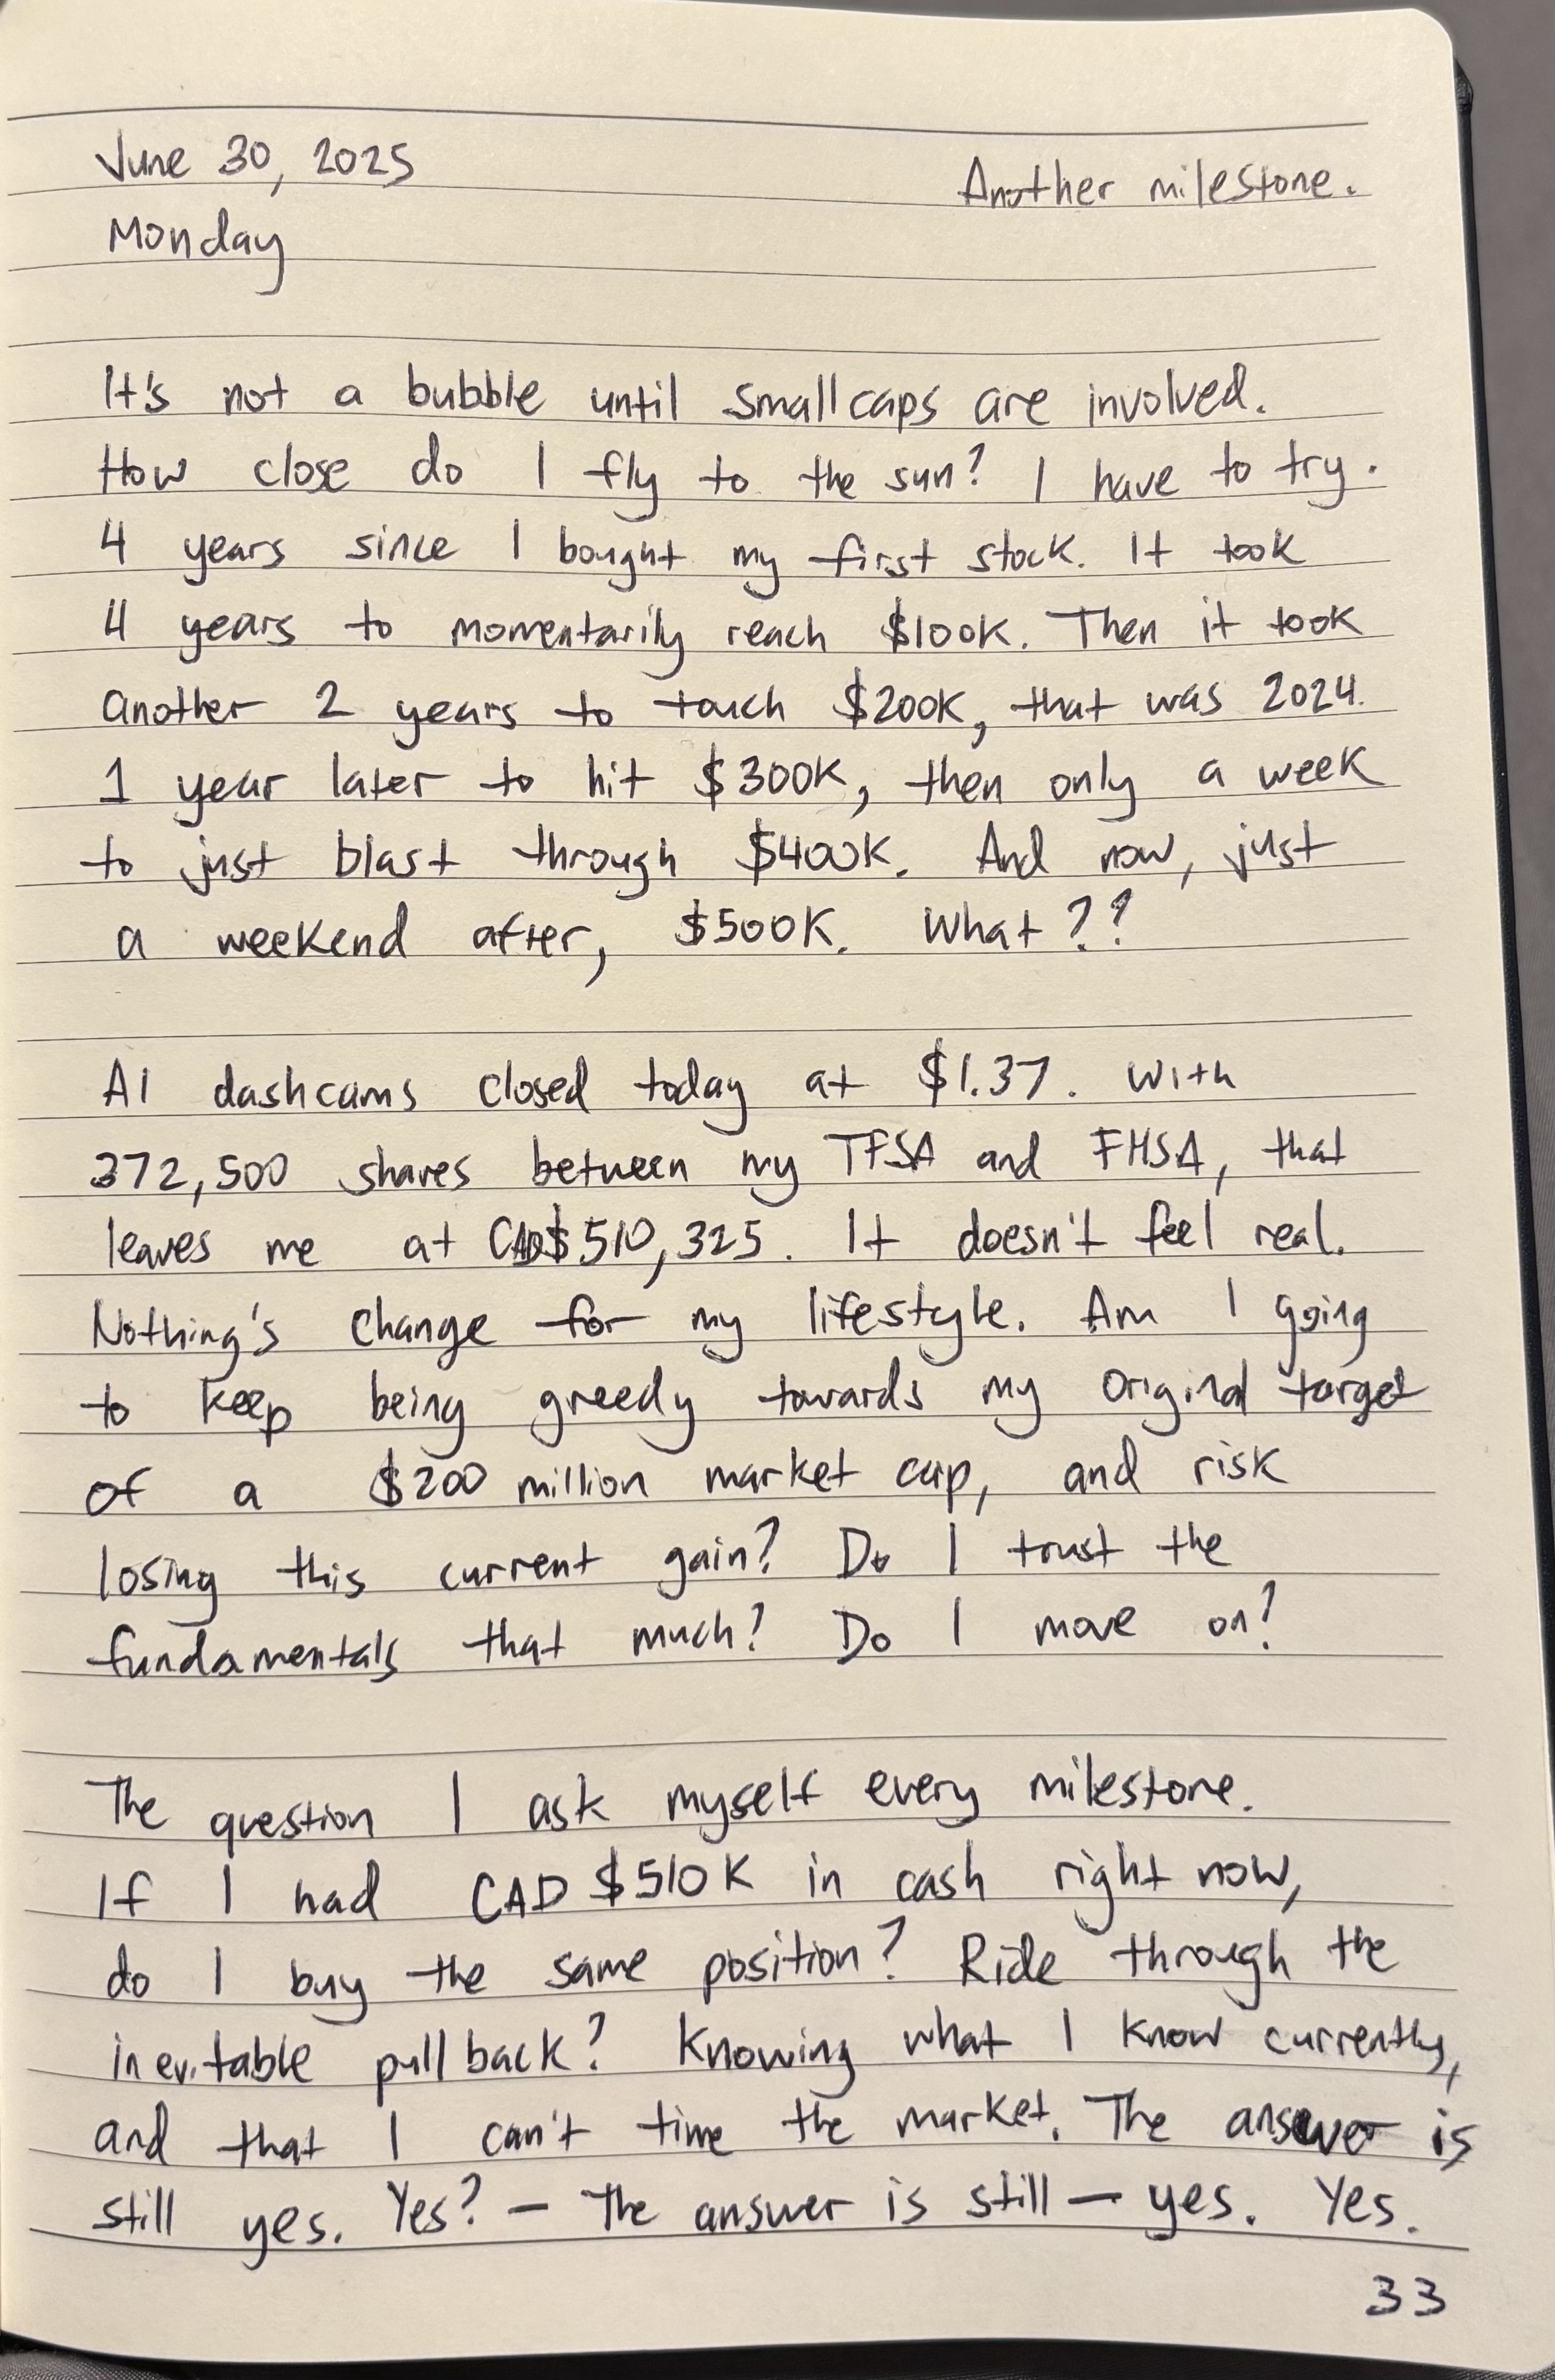 June 30, 2025
Another milestone.
Monday
It's not a bubble until smallcaps are involved.
How close do I fly to the sun? I have to try.
4 years since I bought my first stock. It took
4 years to momentarily reach $100K. Then it took
another 2 years to touch $200K, that was 2024.
1 year later to hit $300K, then only a week
to just blast through $400K. And now, just
a weekend after, $500K. What??
AI dashcams closed today at $1.37. With
372,500 shares between my TFSA and FHSA, that
leaves me at CAD$510,325. It doesn't feel real.
Nothing's change for my lifestyle. Am I going
to keep being greedy towards my original target
of a $200 million market cap, and risk
losing this current gain? Do I trust the
fundamentals that much? Do I move on?
The question I ask myself every milestone.
If I had CAD $510K in cash right now,
do I buy the same position? Ride through the
inevitable pullback? Knowing what I know currently,
and that I can't time the market. The answer is
still yes. Yes? – The answer is still – yes. Yes.
33